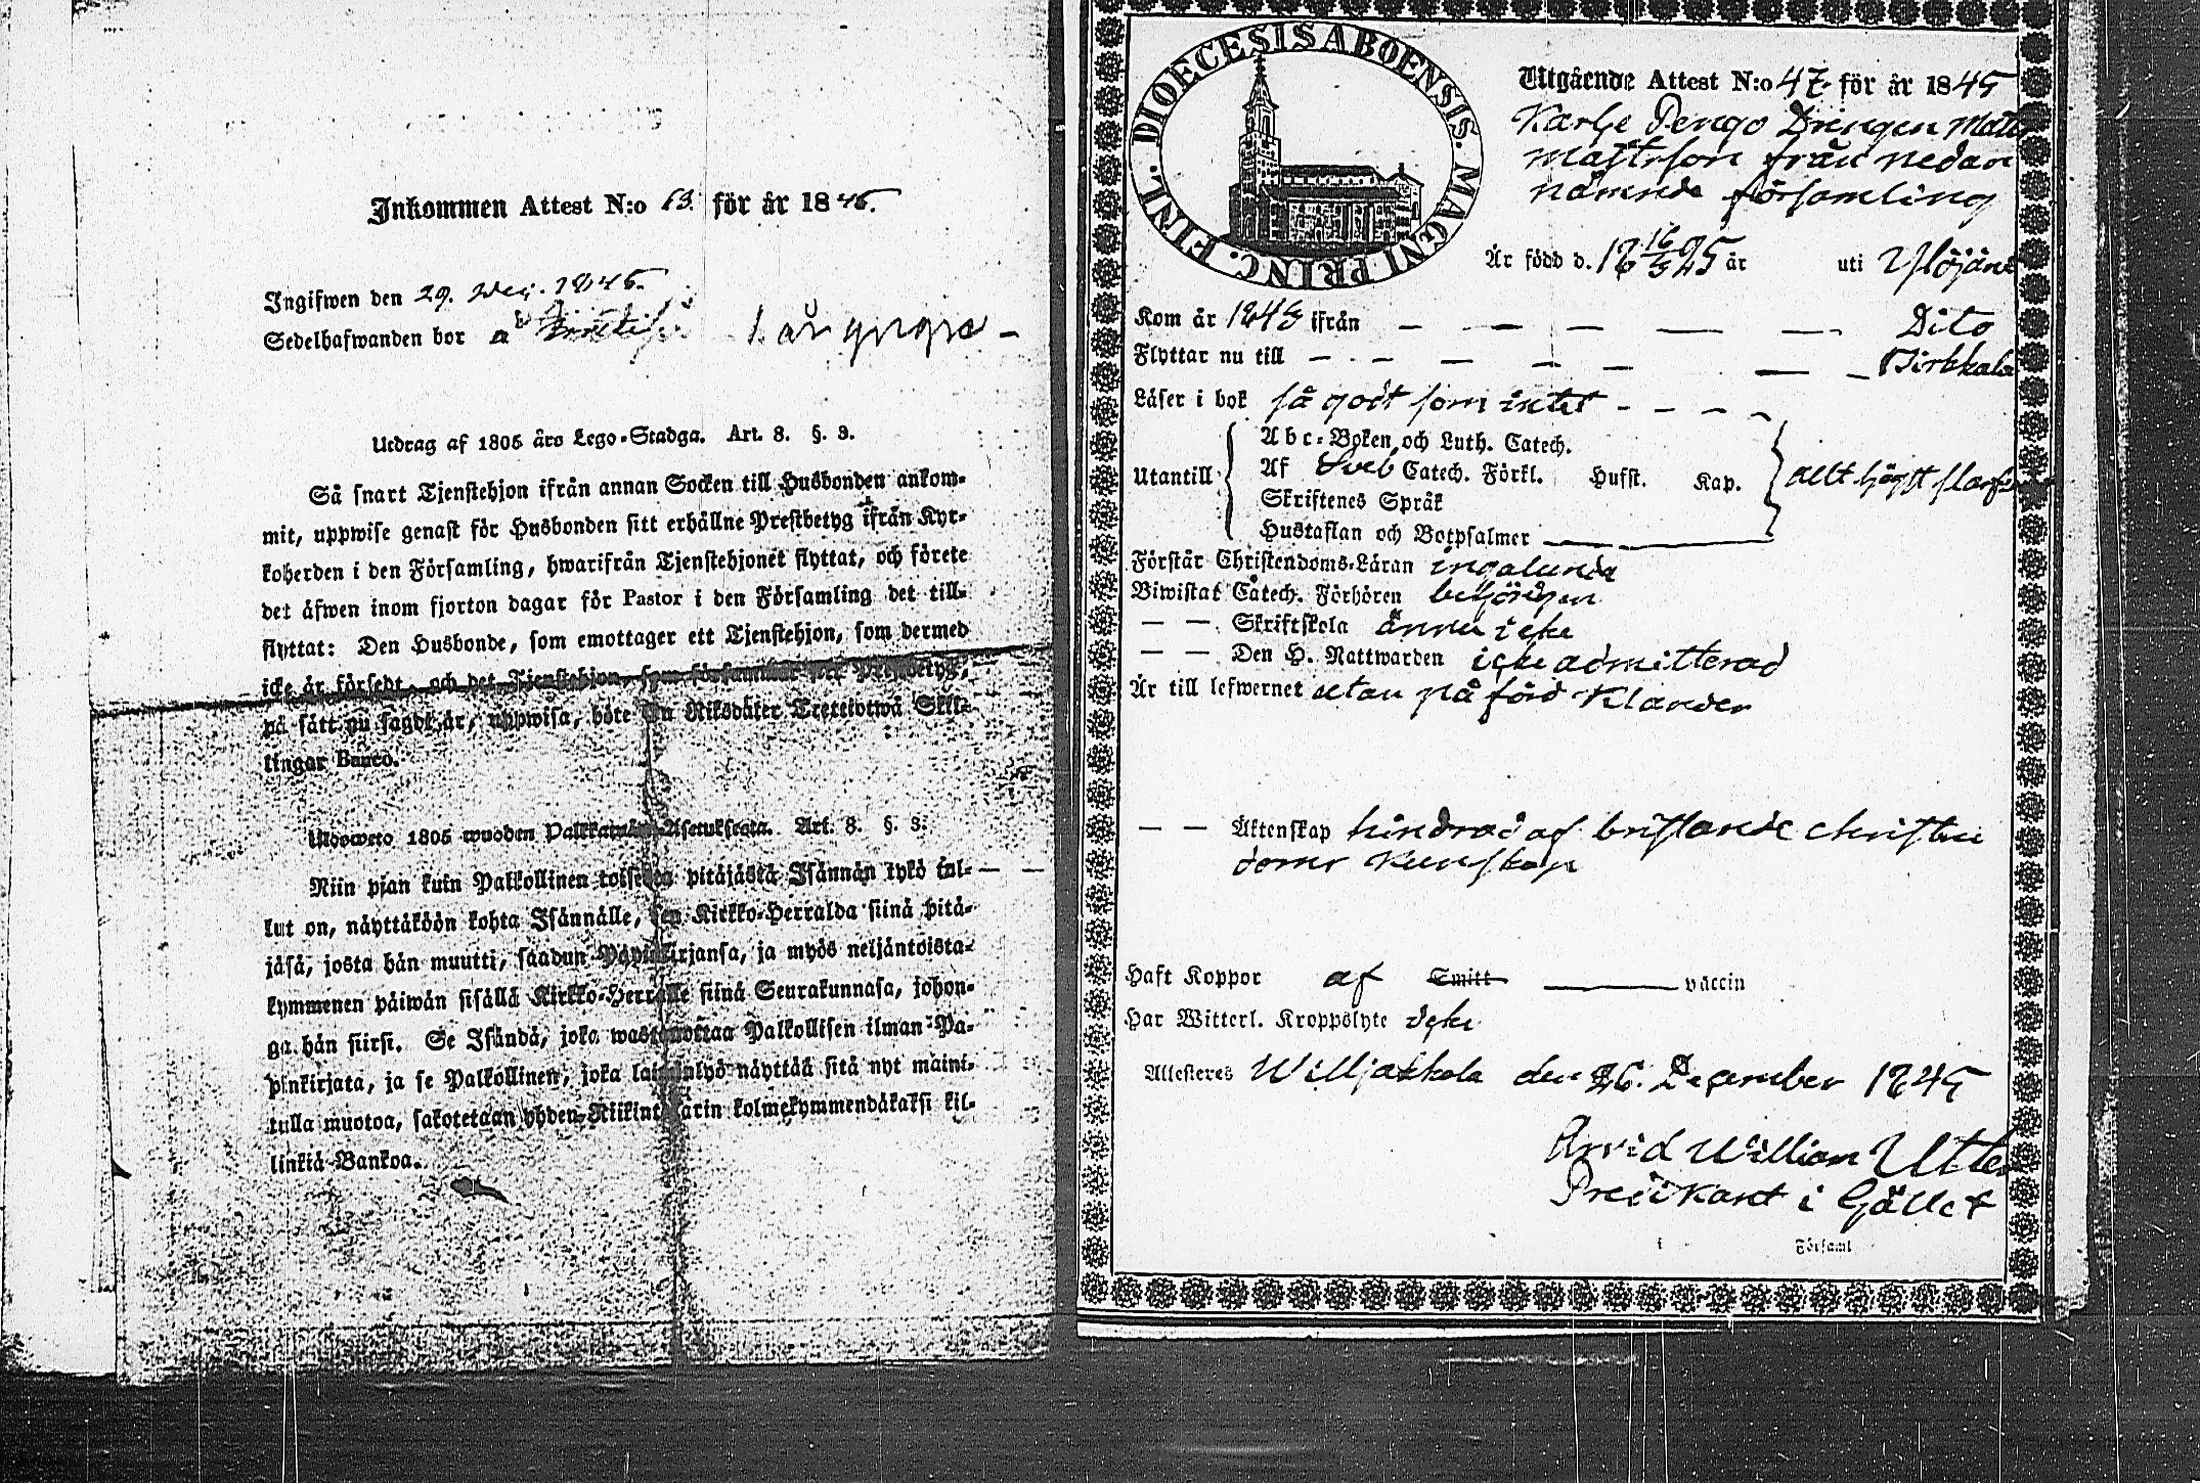 Inkommen Attest N:o 63. för år 1845.
Ingifwen den 29. Dec. 1845.
Sedelhafwanden bor å
Utdrag af 1805 års Lego-Stadga. Art. 8. §. 3.
Så snart Tjenstehjon ifrån annan Socken till Husbonden ankom-
mit, uppwise genast för Husbonden sitt erhållne Prestbetyg ifrån Kyr-
koherden i den Församling, hwarifrån Tjenstehjonet flyttat, och förete
det äfwen inom fjorton dagar för Pastor i den Församling det till-
flyttat: Den Husbonde, som emottager ett Tjenstehjon, som dermed
icke är försedt, och det Tjenstehjon, som försummar sitt Prestbetyg,
på sätt nu sagdt är, uppwisa, böte en Riksdaler Trettiotwå Skil-
lingar Banco.
Ulosweto 1805 wuoden Palkkawäen-Asetuksesta. Art. 8. §. 3.
Niin pian kuin Palkollinen toisesta pitäjästä Isännän tykö tul-
lut on, näyttäköön kohta Isännälle, sen Kirkko-Herralda siinä pitä-
jäsä, josta hän muutti, saadun Papinkirjansa, ja myös neljäntoista-
kymmenen päiwän sisällä Kirkko-Herralle siinä Seurakunnasa, johon-
ga hän siirsi. Se Isändä, joka wastanottaa Palkollisen ilman Pa-
pinkirjata, ja se Palkollinen, joka laiminlyö näyttää sitä nyt maini-
tulla muotoa, sakotetaan yhden Riikintalarin kolmekymmendäkaksi kil-
linkiä Bankoa.
DIOECESIS ABOENSIS. MAGNI PRINC. FINL.
Utgående Attest N:o 47. för år 1845
Karhe Pengo Drengen Matts
Mattsson från nedan
nämnde församling
Är född d. 18 16/5 25 år uti Ylöjäni
Kom år 1845 ifrån — — — — — Dito
Flyttar nu till — — — — — Birkkala
Läser i bok så godt som intet - - - -
Abc-Boken och Luth. Catech.
Utantill Af Sveb Catech. Förkl. Hufst. Kap. allt högst
Skriftenes Språk
Hustaflan och Botpsalmer
Förstår Christendoms-Läran ingalunda
Biwistat Catech. Förhören behörigen
— — Skriftskola ännu icke
— — Den H. Nattwarden icke admitterad
Är till lefwernet utan påförd Klander
— — Äktenskap hindrad af bristande christen
doms kunskap
Haft Koppor af Smitt vaccin
Har Witterl. Kroppslyte icke
Attesteres Williakkala den 26. December 1845
Arvid William Utter
Predikant i Gället
i Församl